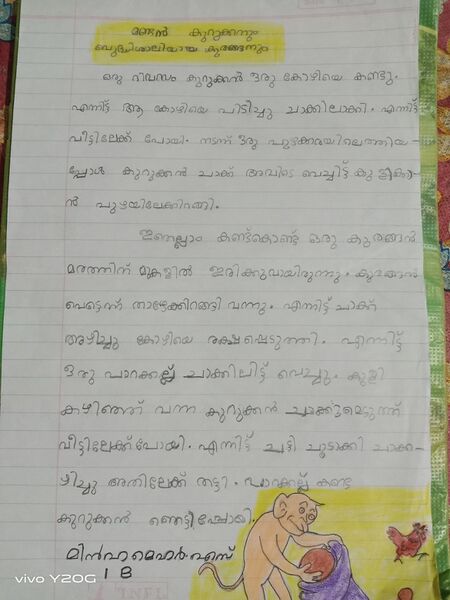 മണ്ടൻ കുറുക്കനും
ബുദ്ധിശാലിയായ കുരങ്ങനും
ഒരു ദിവസം കുറുക്കൻ ഒരു കോഴിയെ കണ്ടു.
എന്നിട്ട് ആ കോഴിയെ പിടിച്ചു ചാക്കിലാക്കി. എന്നിട്ട്
വീട്ടിലേക്ക് പോയി. നടന്ന് ഒരു പുഴക്കരയിലെത്തിയ-
പ്പോൾ കുറുക്കൻ ചാക്ക് അവിടെ വെച്ചിട്ട് കുളിക്കാ-
ൻ പുഴയിലേക്കിറങ്ങി.
ഇതെല്ലാം കണ്ട്കൊണ്ട് ഒരു കുരങ്ങൻ
മരത്തിന് മുകളിൽ ഇരിക്കുവായിരുന്നു. കുരങ്ങൻ
പെട്ടെന്ന് താഴേക്കിറങ്ങി വന്നു. എന്നിട്ട് ചാക്ക്
അഴിച്ചു കോഴിയെ രക്ഷപ്പെടുത്തി. എന്നിട്ട്
ഒരു പാറക്കല്ല് ചാക്കിലിട്ട് വെച്ചു. കുളി
കഴിഞ്ഞത് വന്ന കുറുക്കൻ ചാക്കുമെടുത്ത്
വീട്ടിലേക്ക്പോയി. എന്നിട്ട് ചട്ടി ചൂടാക്കി ചാക്ക-
ഴിച്ചു അതിലേക്ക് തട്ടി. പാറക്കല്ല് കണ്ട
കുറുക്കൻ ഞെട്ടിപ്പോയി.
മിൻഹ മെഹർ എസ്
1 B
vivo Y20G